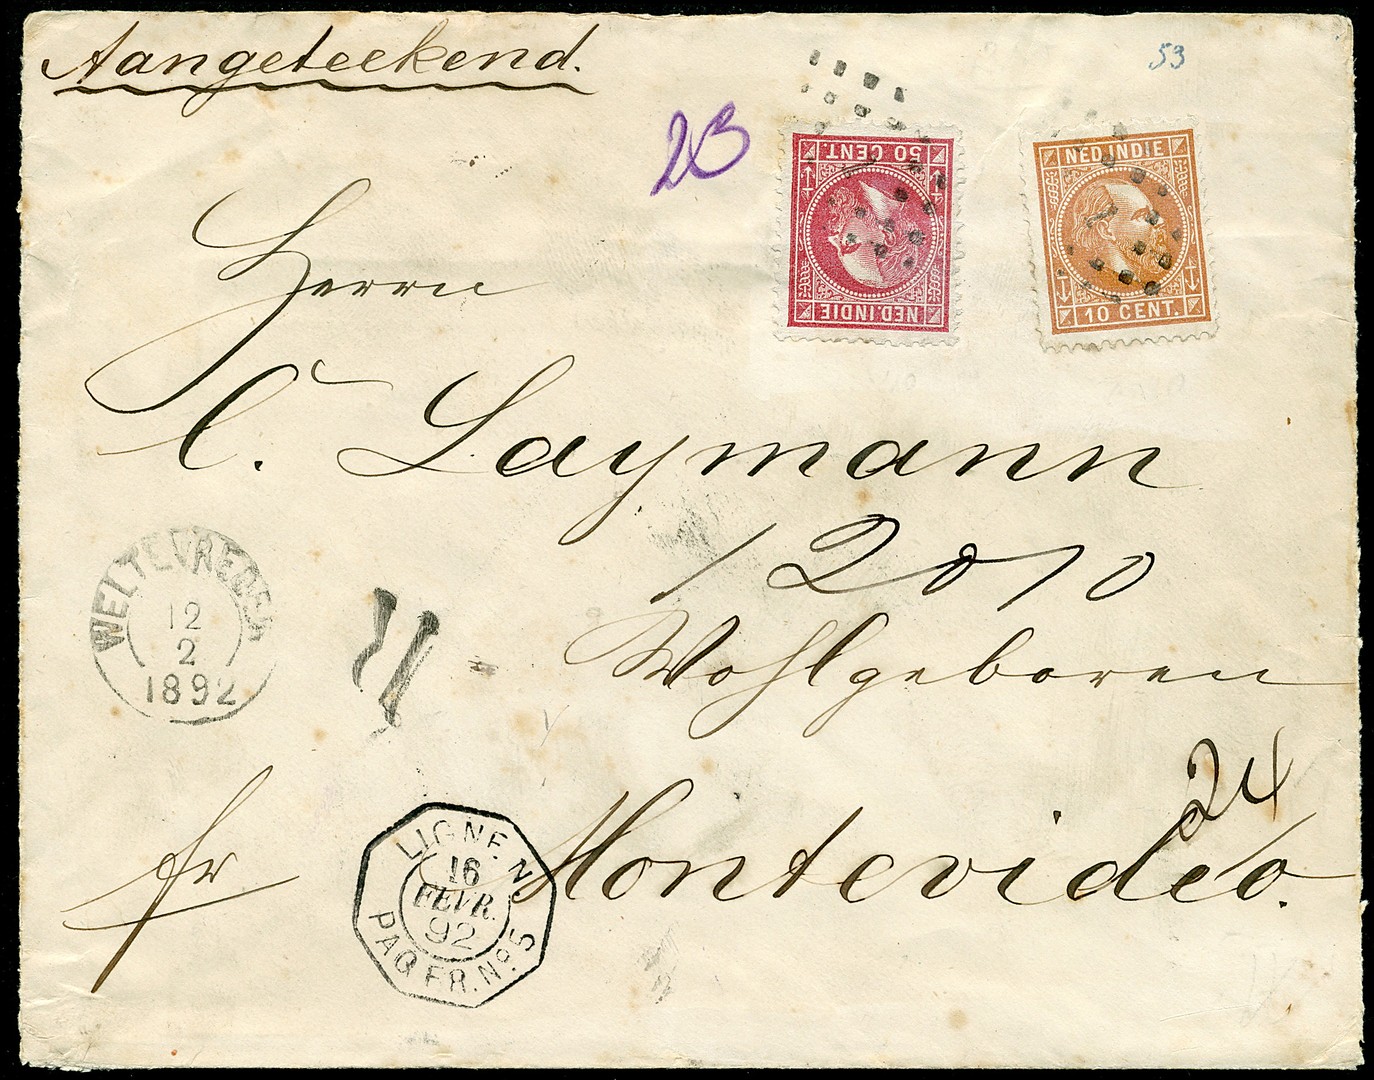 Aangeteekend.
53
23
50 CENT.
NED. INDIE
NED. INDIE
10 CENT.
Herrn
C. Laymann
1201/0
Wohlgeboren
WELTEVREDEN
12
2
1892
24
fr Montevideo.
LIGNE N.
16
FEVR.
92
PAQ. FR. No. 5